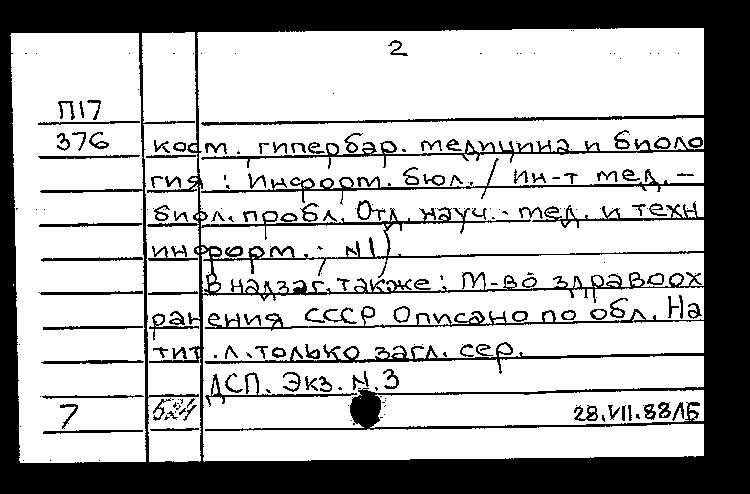 2
П17
376 косм. гипербар. медицина и биоло
гия : Информ. бюл. / Ин-т мед.-
биол. пробл. Отд. науч.-мед. и техн
информ. ; N1).
В надзаг. также: М-во здравоох
ранения СССР Описано по обл. На
тит. л. только загл. сер.
ДСП. Экз. N.3
7 524 28.VII.88ЛБ